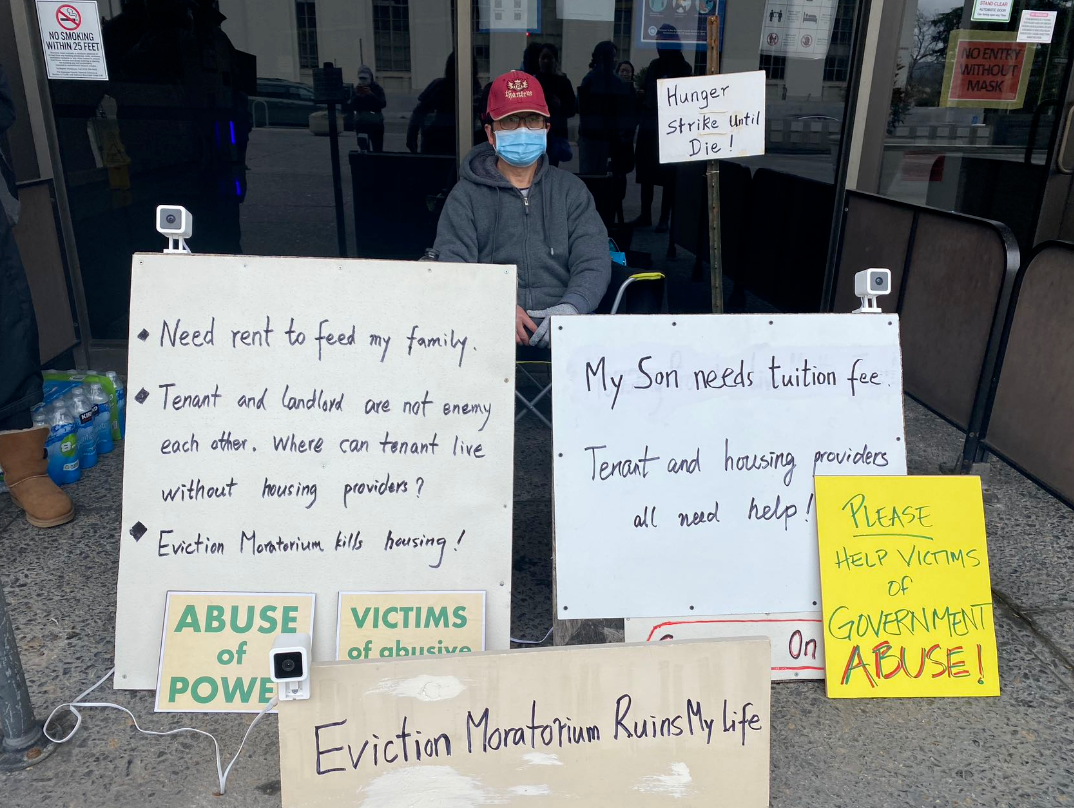 NO SMOKING
WITHIN 25 FEET
STAND CLEAR
NO ENTRY
WITHOUT
MASK
Hunger
Strike Until
Die !
Need rent to feed my family.
Tenant and landlord are not enemy
each other. Where can tenant live
without housing providers?
Eviction Moratorium kills housing!
My Son needs tuition fee.
Tenant and housing providers
all need help!
PLEASE
HELP VICTIMS
OF
GOVERNMENT
ABUSE!
ABUSE
of
POWE
VICTIMS
of abusive
On
Eviction Moratorium Ruins My Life